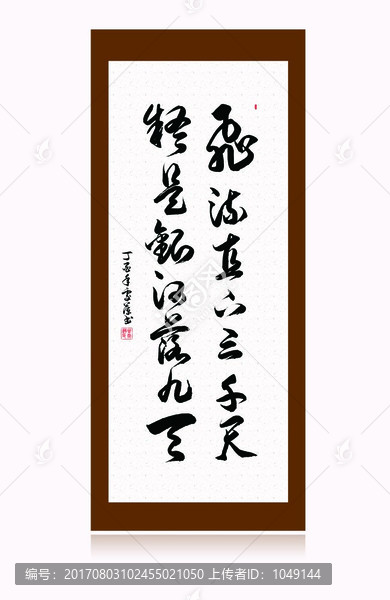 飞流直下三千尺
疑是银河落九天
丁酉年
编号：20170803102455021050 上传者ID：1049144